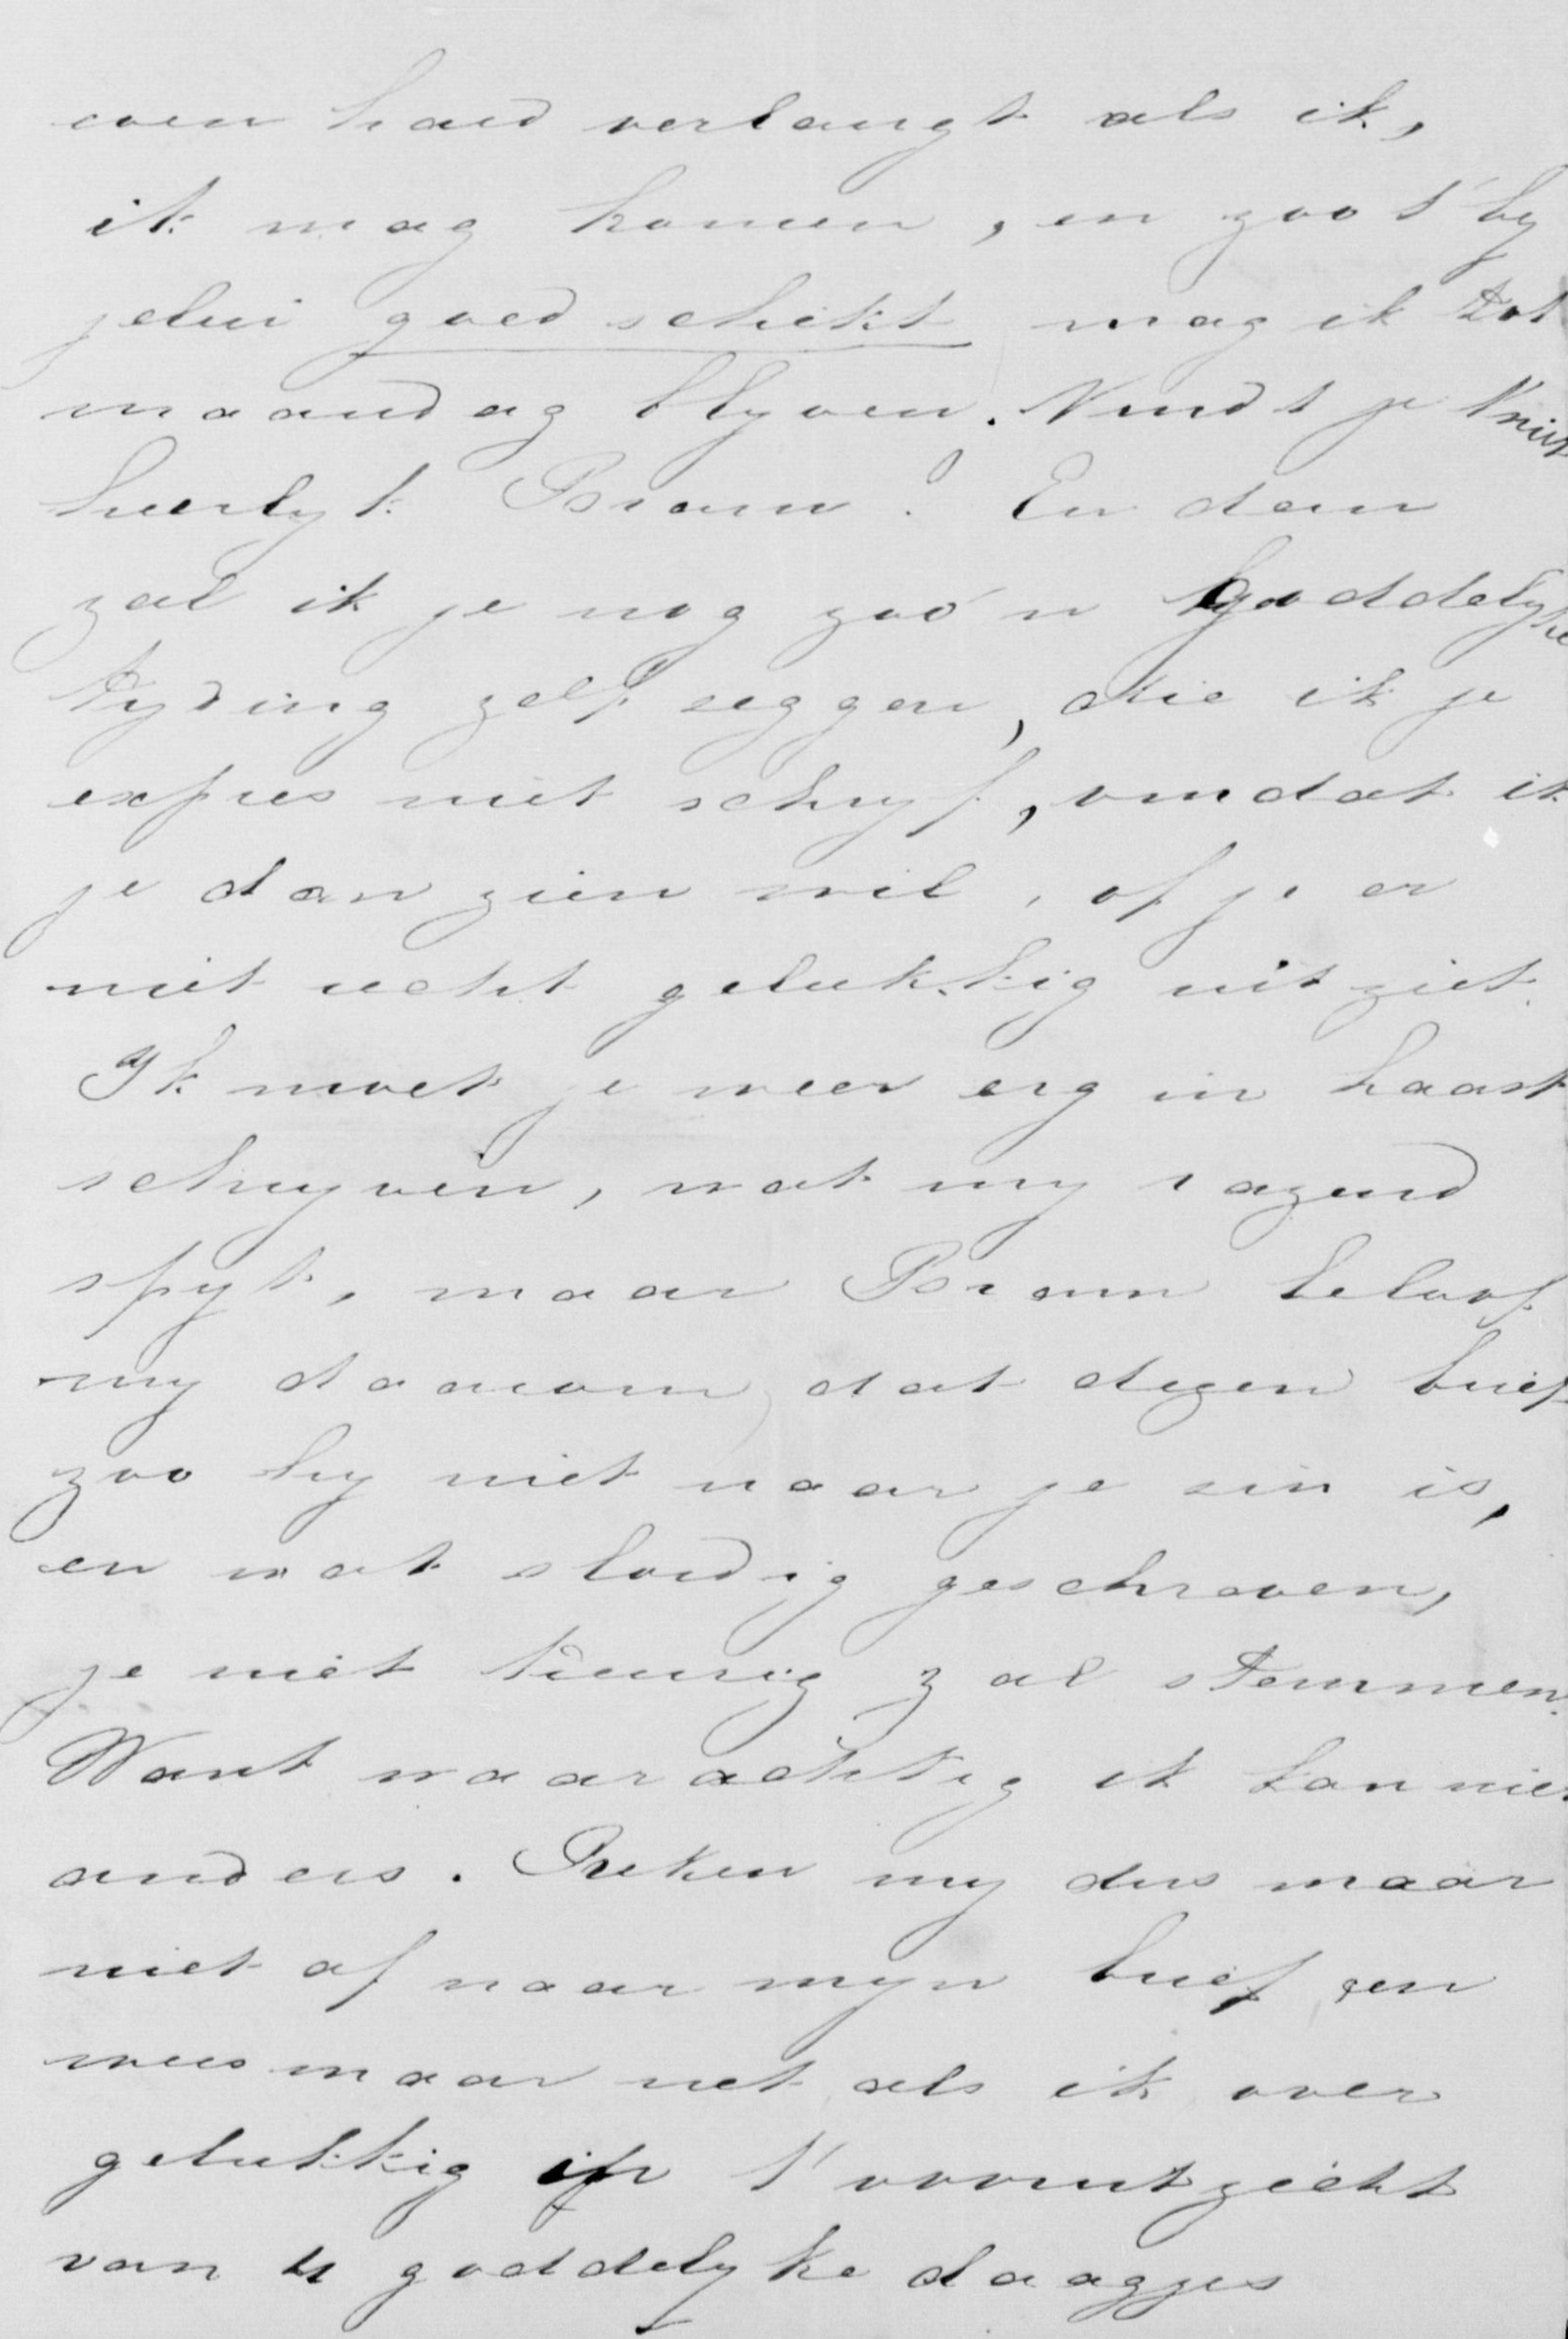 even hard verlangt als ik,
ik mag komen, en zoo 't by
jelui goed schikt mag ik tot
maandag blyven. Vindt je 't niet
heerlyk Bram? En dan
zal ik je nog zoo'n goddelyke
tyding zelf zeggen, die ik je
expres niet schryf, omdat ik
je dan zien wil, of je er
niet echt gelukkig uitziet.
Ik moet je weer erg in haast
schryven, wat my razend
spyt, maar Bram beloof
my daarom, dat dezen brief
zoo hy niet naar je zin is,
en wat slordig geschreven,
je niet treurig zal stemmen.
Want waarachtig ik kan niet
anders. Reken my dus maar
niet af naar myn brief en
wees maar net als ik over
gelukkig in 't vooruitzicht
van 4 goddelyke daagjes